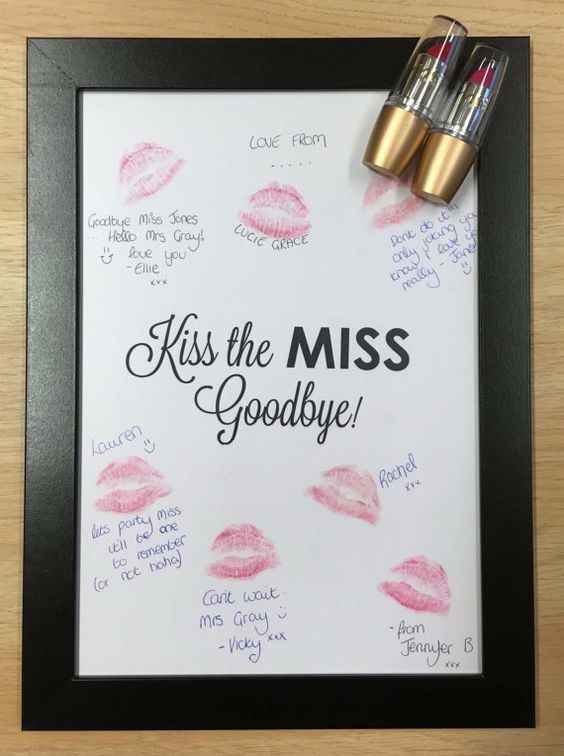 LOVE FROM
.....
Goodbye Miss Jones
Hello Mrs Gray!
love you
- Ellie
xxx
LUCIE GRACE
Dont do it
only joking you
know i love you
really - Janet
Kiss the MISS
Goodbye!
Lauren
lets party miss
it'll be one
to remember
(or not haha)
Rachel
xxx
Can't wait
Mrs Gray
- Vicky xxx
- from
Jennyfer B
xxx